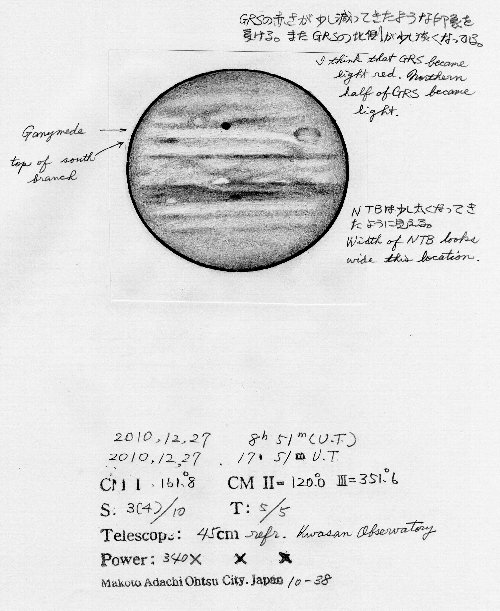 GRSの赤さが少し減ってきたような印象を
受ける。またGRSの北側が少し淡くなってる。
I think that GRS became
light red. Northern
half of GRS became
light.
Ganymede
top of south
branch
NTBは少し太くなってき
たように見える。
Width of NTB looks
wide this location.
2010,12,27 8h 51m (U.T)
2010,12,27 17: 51m U.T
CM I 161.°8 CM II= 120.°0 III=351.°6
S: 3(4)/10 T: 5/5
Telescope: 45cm refr. Kwasan Observatory
Power: 340× × ×
Makoto Adachi Ohtsu City. Japan 10-38